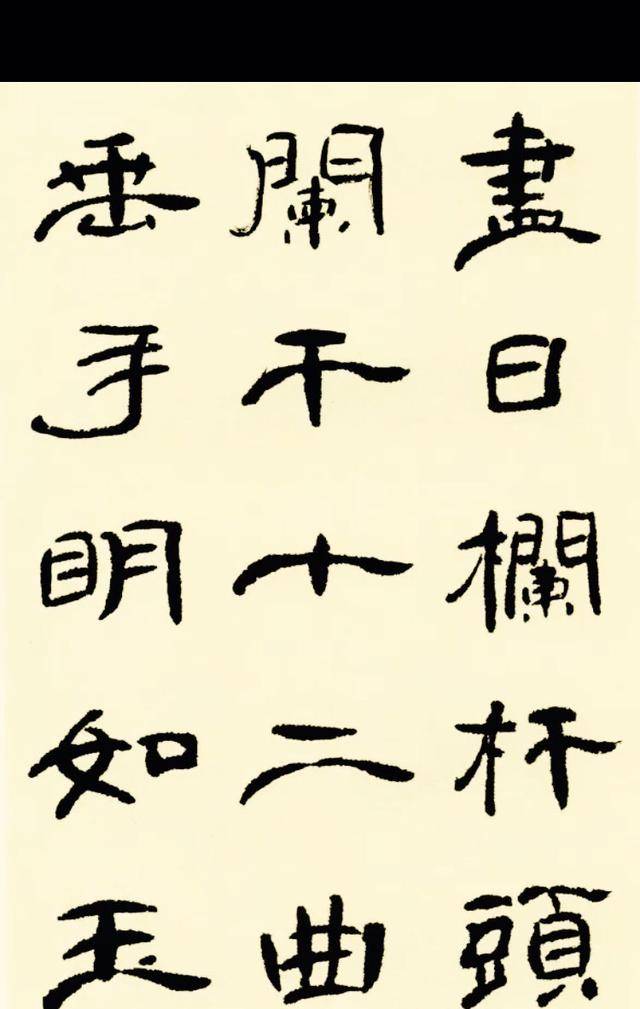 盡日欄杆頭
闌干十二曲
垂手明如玉